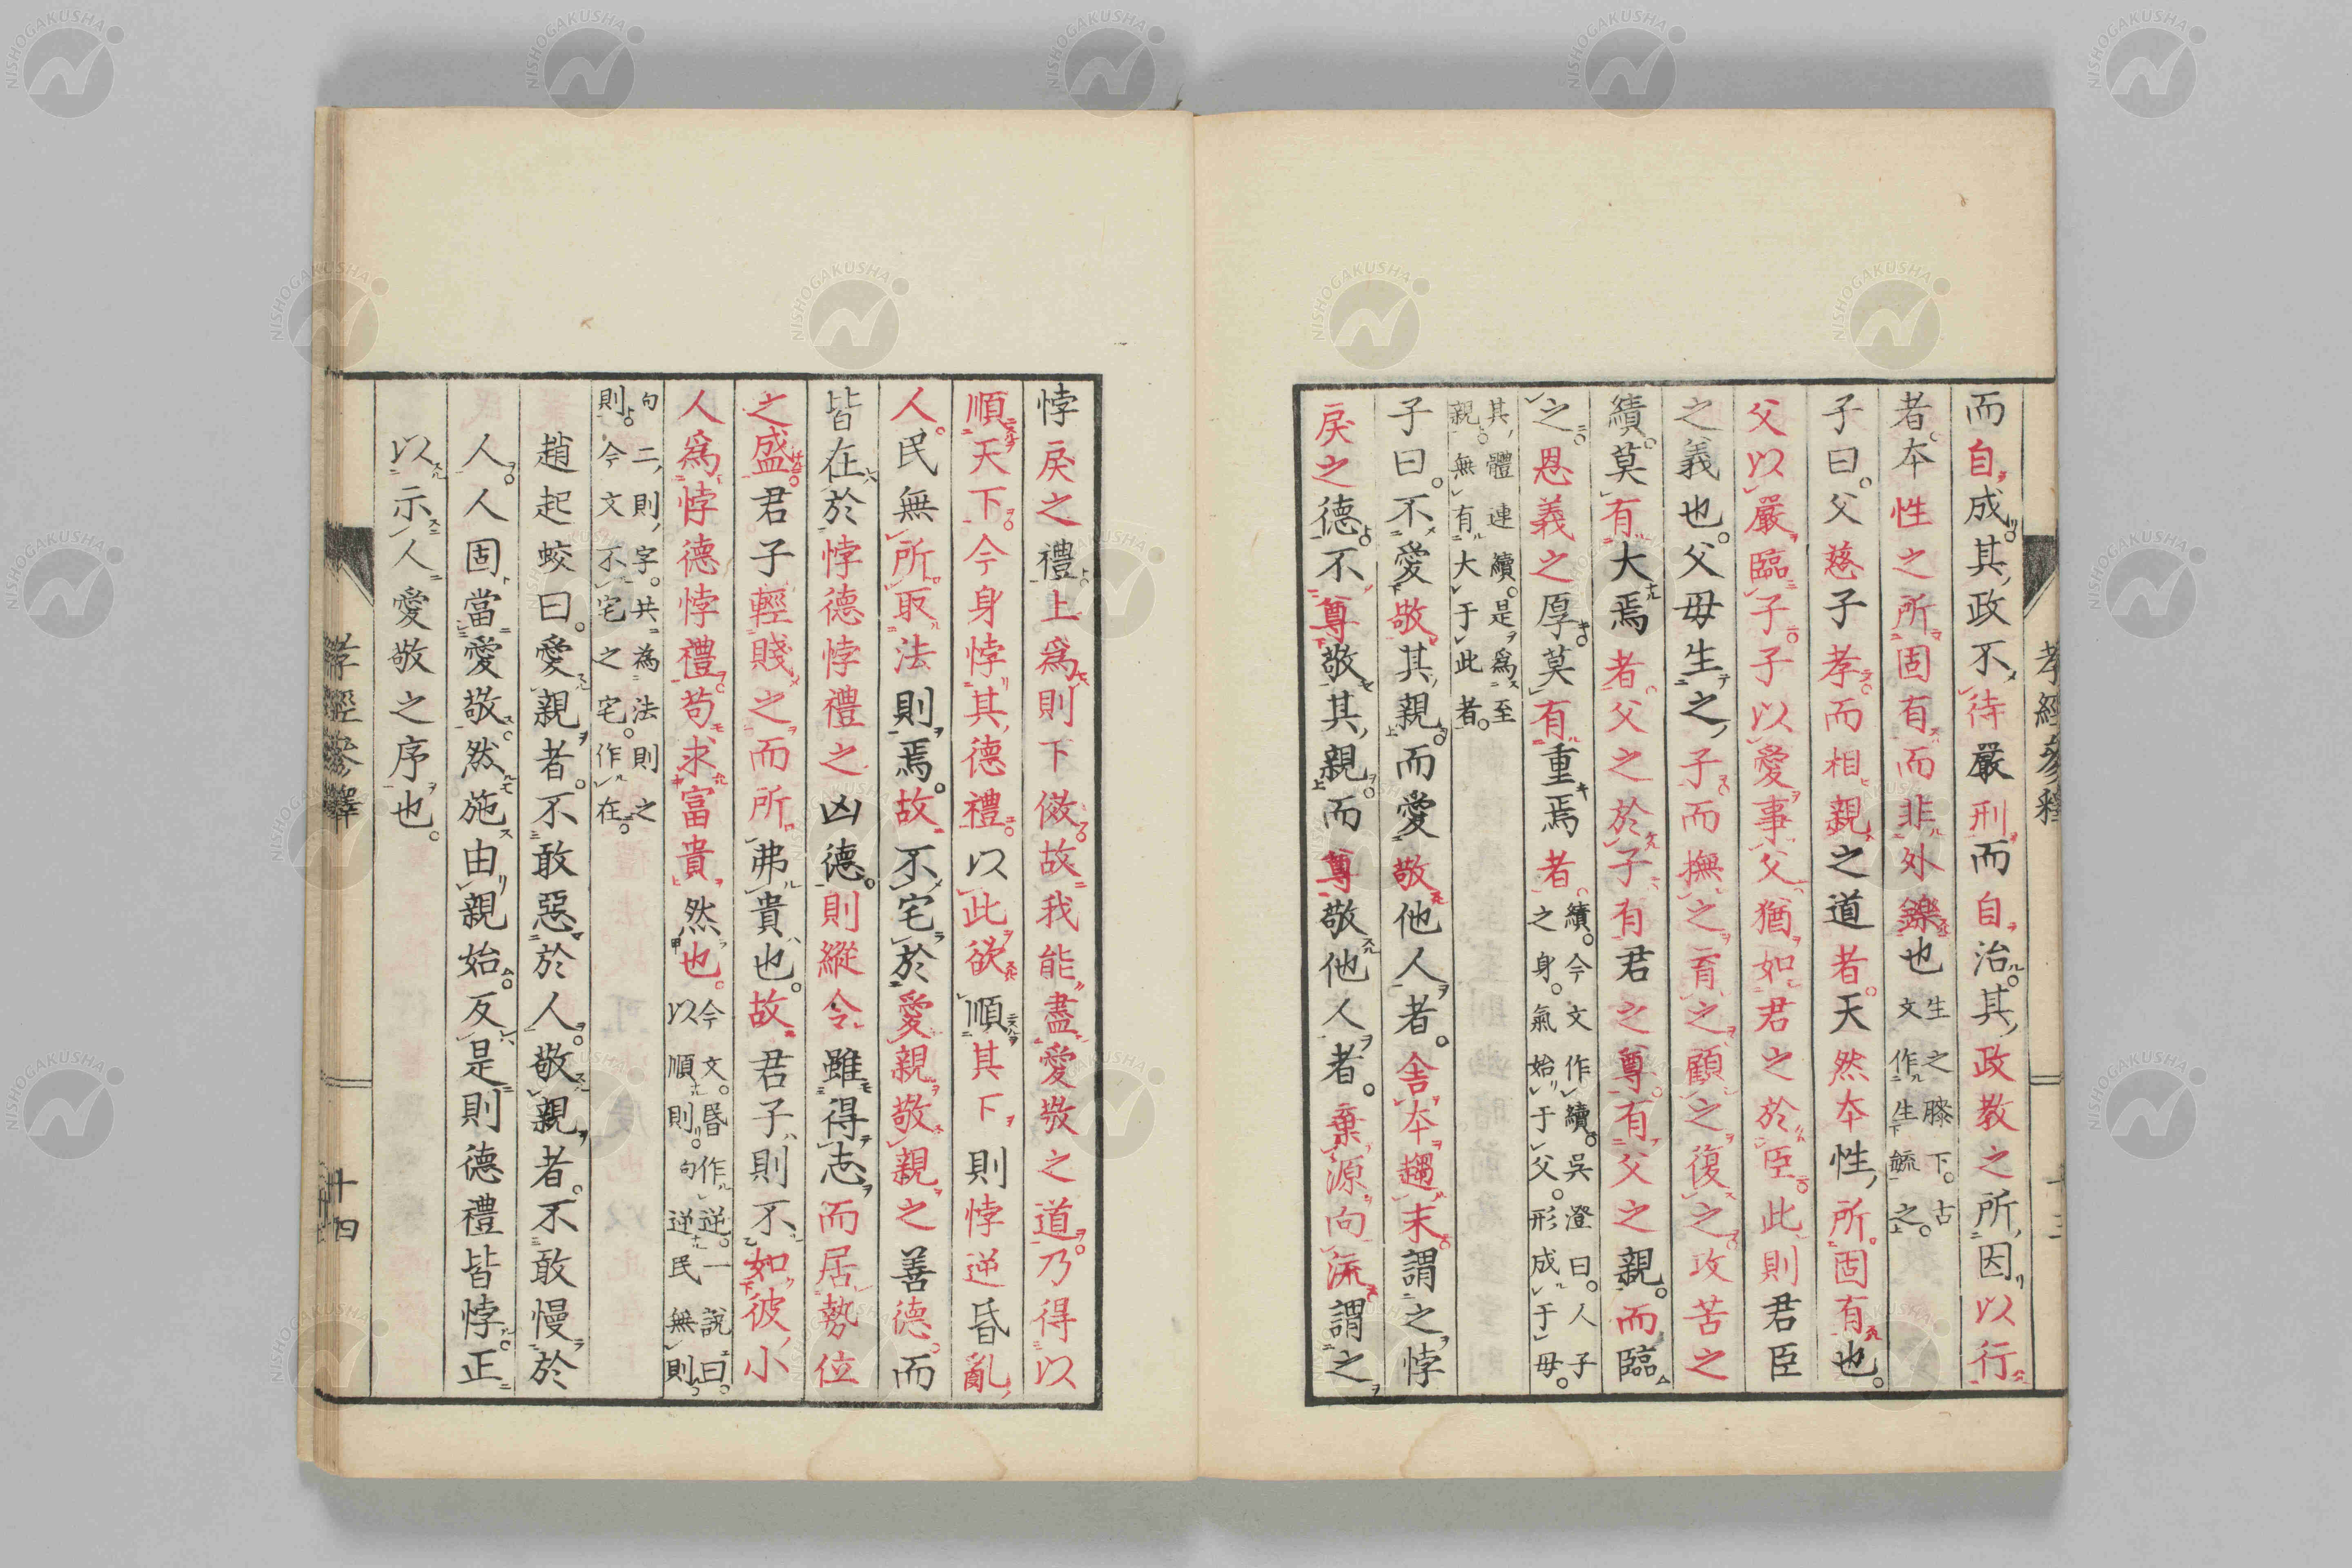 而自成其政不待嚴刑而自治其政教之所因以行
者本性之所固有而非外鑠也生之膝下古
文作生毓之
子曰父慈子孝而相親之道者天然本性所固有也
父以嚴臨子子以愛事父猶如君之於臣此則君臣
之義也父母生之子而撫之育之顧之復之攻苦之
續莫有大焉者父之於子有君之尊有父之親而臨
之恩義之厚莫有重焉者續今文作續吳澄曰人子
之身氣始于父形成于母
其體連續是爲至
親無有大于此者
子曰不愛敬其親而愛敬他人者舍本趨末謂之悖
戾之德不尊敬其親而尊敬他人者棄源向流謂之
孝經參釋
悖戾之禮上爲則下傚故我能盡愛敬之道乃得以
順天下今身悖其德禮以此欲順其下則悖逆昏亂
人民無所取法則焉故不宅於愛親敬親之善德而
皆在於悖德悖禮之凶德則縱令雖得志而居勢位
之盛君子輕賤之而所弗貴也故君子則不如彼小
人爲悖德悖禮苟求富貴然也今文昏作逆一説曰
以順則句逆民無則
句二則字共為法則之
則今文不宅之宅作在
趙起蛟曰愛親者不敢惡於人敬親者不敢慢於
人人固當愛敬然施由親始反是則德禮皆悖正
以示人愛敬之序也
孝經參釋
十四
NISHOGAKUSHA